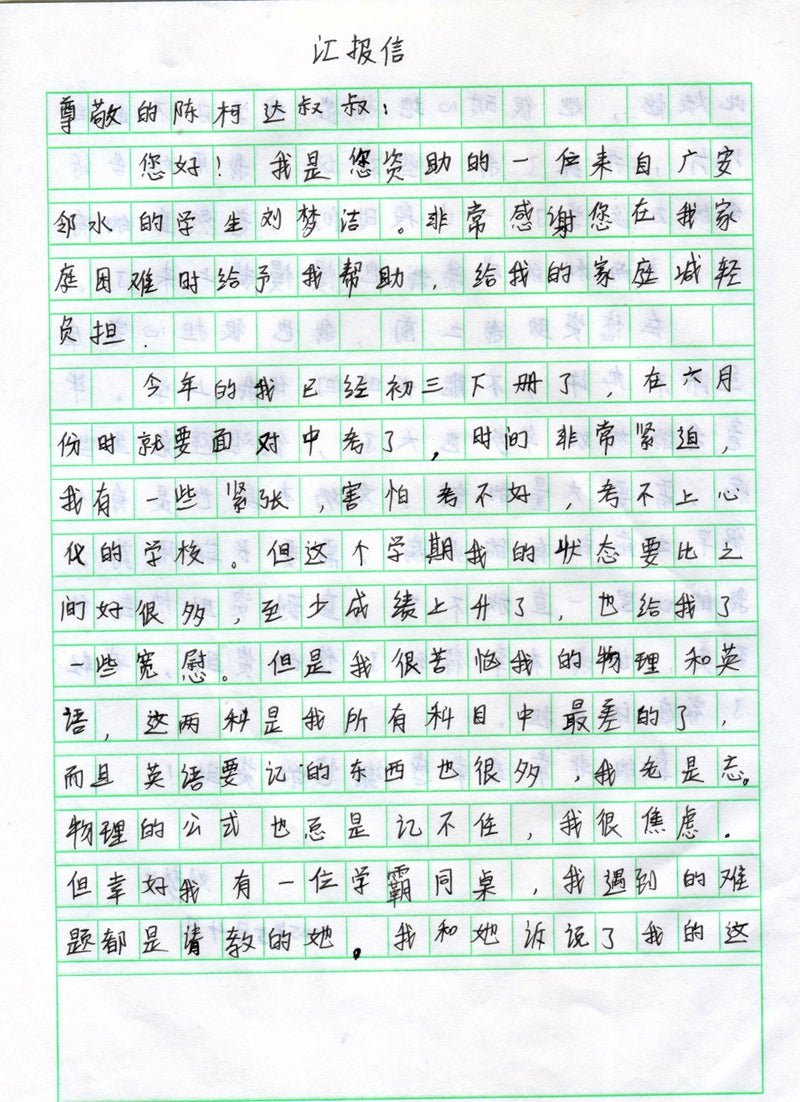 汇报信
尊敬的陈柯达叔叔：
您好！我是您资助的一位来自广安
邻水的学生刘梦洁。非常感谢您在我家
庭困难时给予我帮助，给我的家庭减轻
负担.
今年的我已经初三下册了，在六月
份时就要面对中考了，时间非常紧迫，
我有一些紧张，害怕考不好，考不上心
化的学校。但这个学期我的状态要比之
间好很多，至少成绩上升了，也给我了
一些宽慰。但是我很苦恼我的物理和英
语，这两科是我所有科目中最差的了，
而且英语要记的东西也很多，我老是忘。
物理的公式也总是记不住，我很焦虑.
但幸好我有一位学霸同桌，我遇到的难
题都是请教的她。我和她诉说了我的这